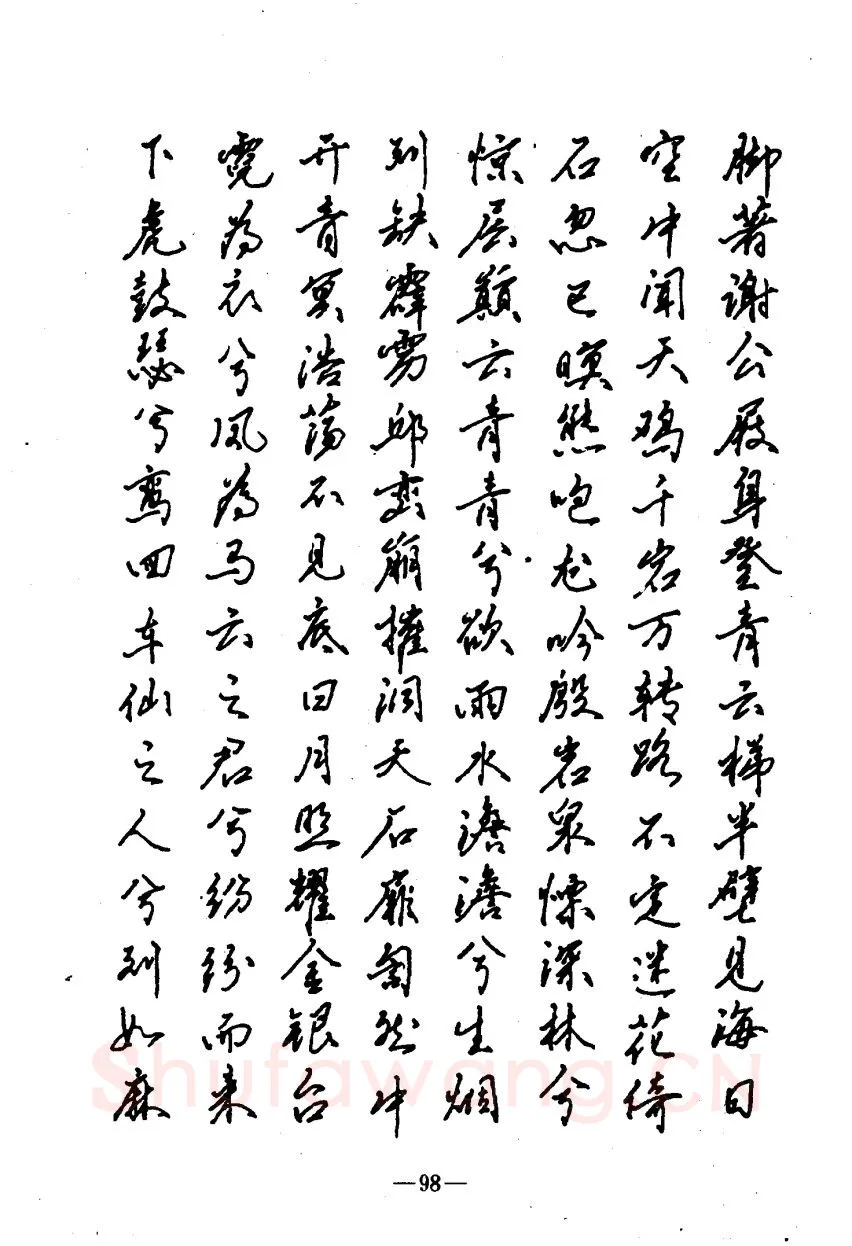 脚著谢公屐身登青云梯半壁见海日
空中闻天鸡千岩万转路不定迷花倚
石忽已暝熊咆龙吟殷岩泉慄深林兮
惊层巅云青青兮欲雨水澹澹兮生烟
列缺霹雳邱峦崩摧洞天石扉訇然中
开青冥浩荡不见底日月照耀金银台
霓为衣兮风为马云之君兮纷纷而来
下虎鼓瑟兮鸾回车仙之人兮列如麻
Shufawang.CN
—98—